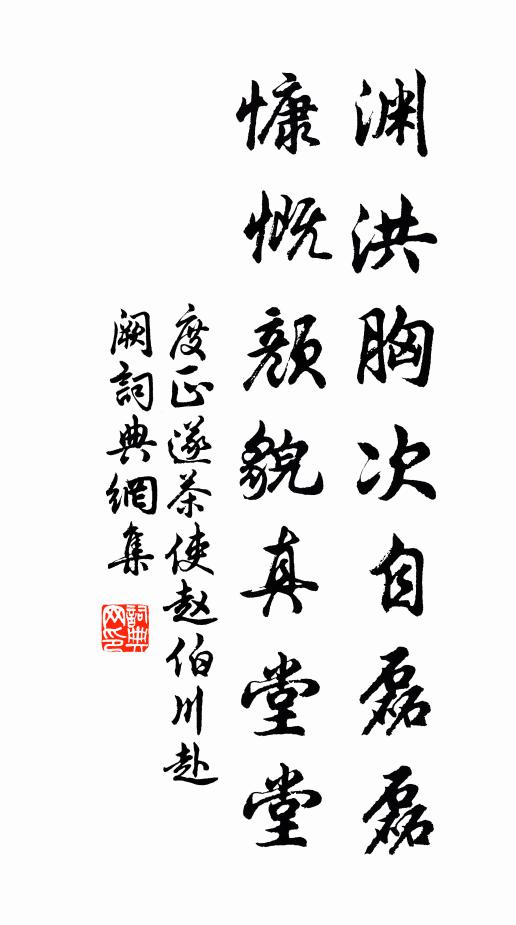 渊洪胸次自磊磊
慷慨颜貌真堂堂
度正送茶使赵伯川赴
阙詞典網集
詞典
网印